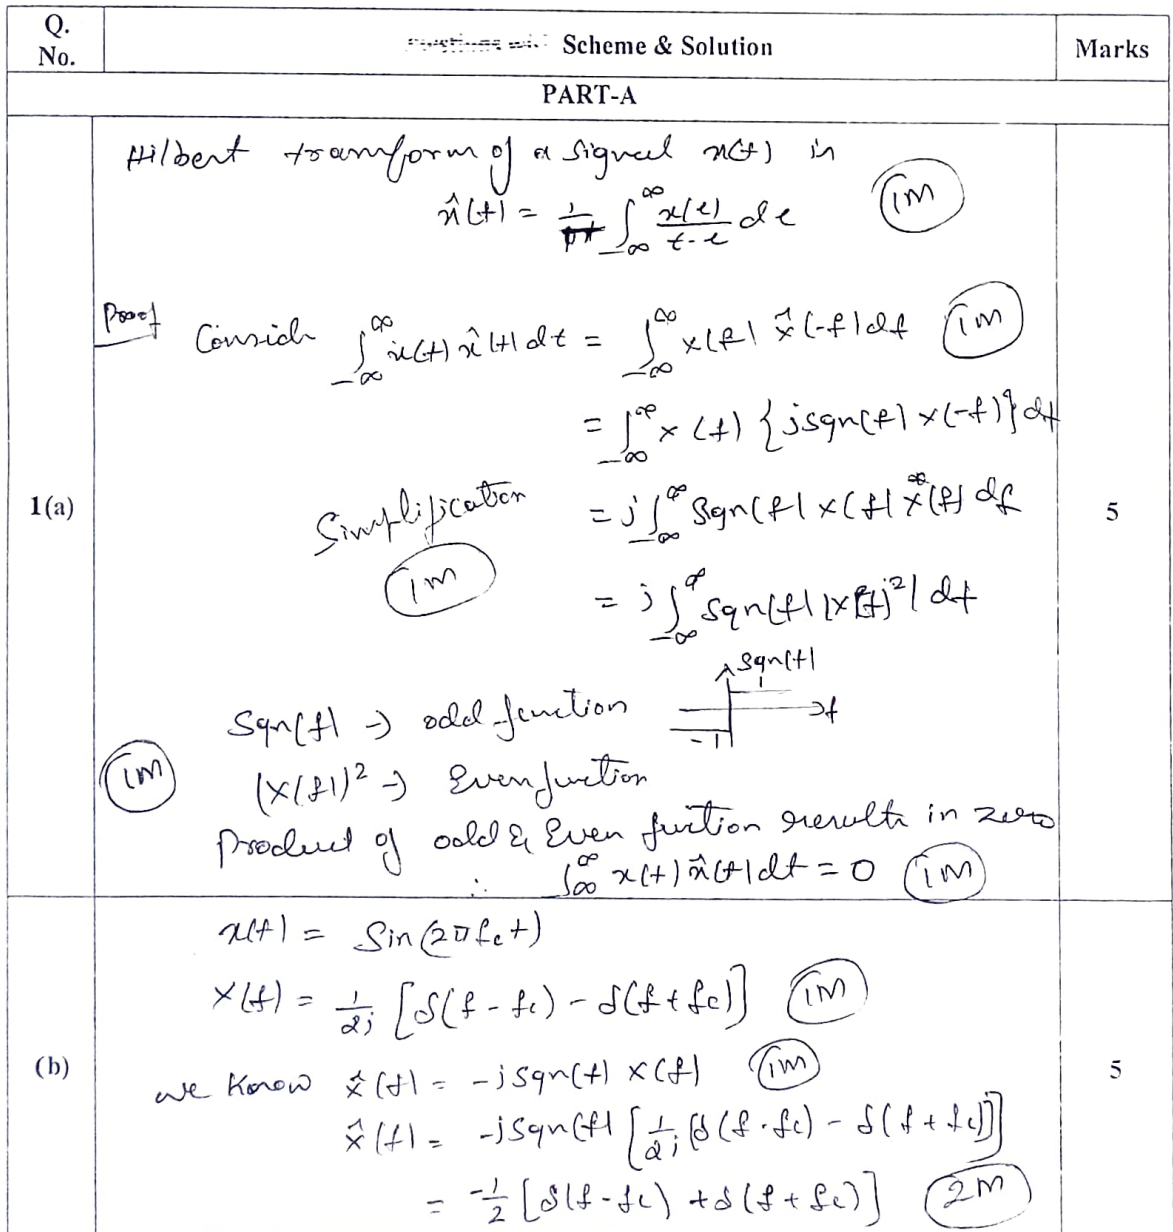 Q. No.
Scheme & Solution
Marks
PART-A
1(a)
Hilbert transform of a signal x(t) is
x̂(t) = 1/π ∫_{-∞}^{∞} x(τ)/(t-τ) dτ (1m)
Proof
Consider ∫_{-∞}^{∞} x(t) x̂(t) dt = ∫_{-∞}^{∞} X(f) X̂(-f) df (1m)
= ∫_{-∞}^{∞} X(f) {jsgn(f) X(-f)} df
Simplification = j ∫_{-∞}^{∞} Sgn(f) X(f) X*(f) df
(1m)
= j ∫_{-∞}^{∞} sgn(f) |X(f)|² df
5
sgn(f)
1
Sgn(f) → odd function
f
-1
(1m) |X(f)|² → Even function
Product of odd & Even fuction results in zero
∴ ∫_{∞}^{∞} x(t) x̂(t) dt = 0 (1m)
(b)
x(t) = Sin(2πfct)
X(f) = 1/2j [δ(f-fc) - δ(f+fc)] (1m)
we Know X̂(f) = -jsgn(f) X(f) (1m)
5
X̂(f) = -jsgn(f) [1/2j [δ(f-fc) - δ(f+fc)]]
= -1/2 [δ(f-fc) + δ(f+fc)] (2m)